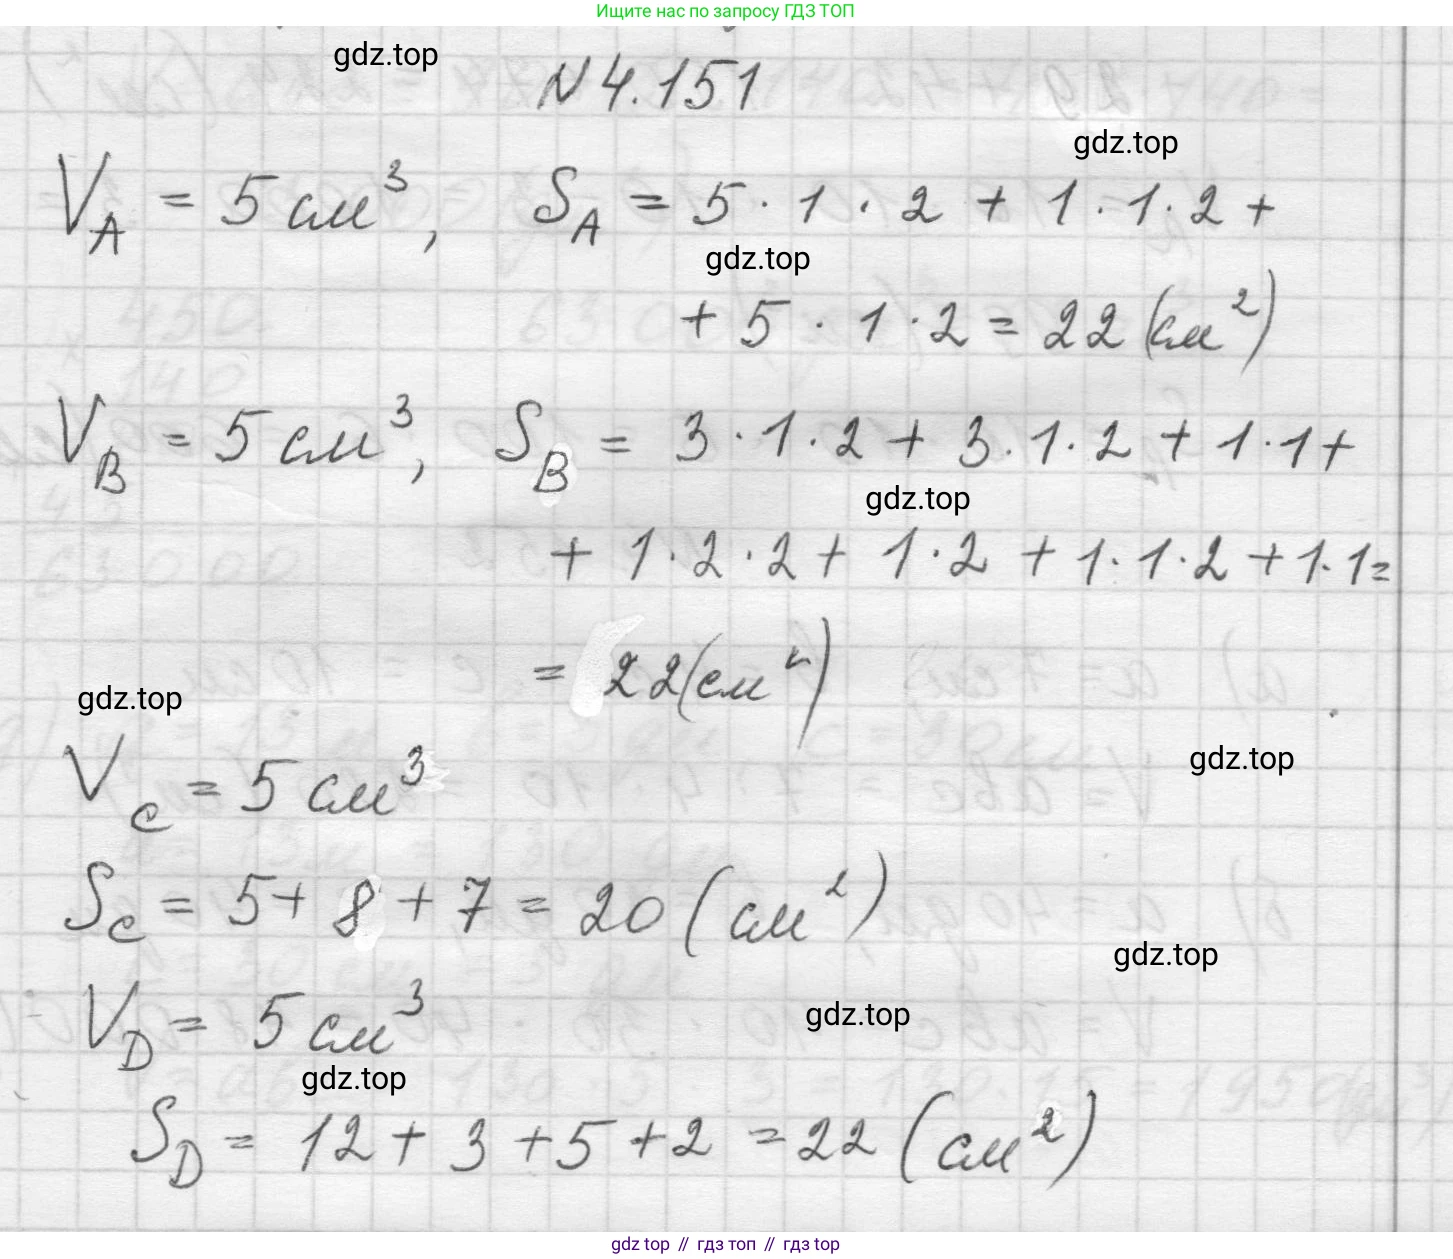 Ищите нас по запросу ГДЗ ТОП
gdz.top
N 4.151
gdz.top
V_A = 5 см³, S_A = 5 · 1 · 2 + 1 · 1 · 2 +
gdz.top
+ 5 · 1 · 2 = 22 (см²)
V_B = 5 см³, S_B = 3 · 1 · 2 + 3 · 1 · 2 + 1 · 1 +
gdz.top
+ 1 · 2 · 2 + 1 · 2 + 1 · 1 · 2 + 1 · 1 =
= 22 (см²)
gdz.top
gdz.top
V_C = 5 см³
S_C = 5 + 8 + 7 = 20 (см²)
gdz.top
V_D = 5 см³
gdz.top
gdz.top
S_D = 12 + 3 + 5 + 2 = 22 (см²)
gdz top // гдз топ // гдз top